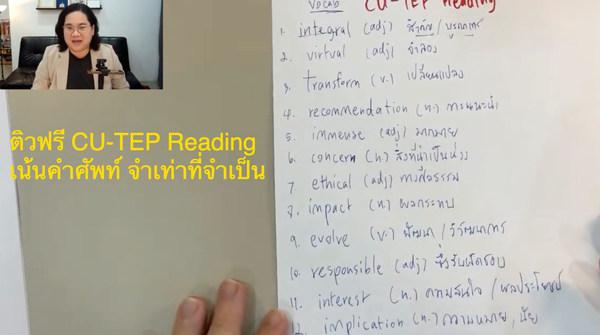 VOCAB CU-TEP Reading
1. integral (adj) สำคัญ / บูรณาการ
2. virtual (adj) จำลอง
3. transform (v.) เปลี่ยนแปลง
4. recommendation (n.) การแนะนำ
5. immense (adj) มากมาย
6. concern (n.) สิ่งที่น่าเป็นห่วง
7. ethical (adj) ทางศีลธรรม
8. impact (n.) ผลกระทบ
9. evolve (v.) พัฒนา / วิวัฒนาการ
10. responsible (adj) ซึ่งรับผิดชอบ
11. interest (n.) ความสนใจ / ผลประโยชน์
12. implication (n.) ความหมาย, นัย
ติวฟรี CU-TEP Reading
เน้นคำศัพท์ จำเท่าที่จำเป็น